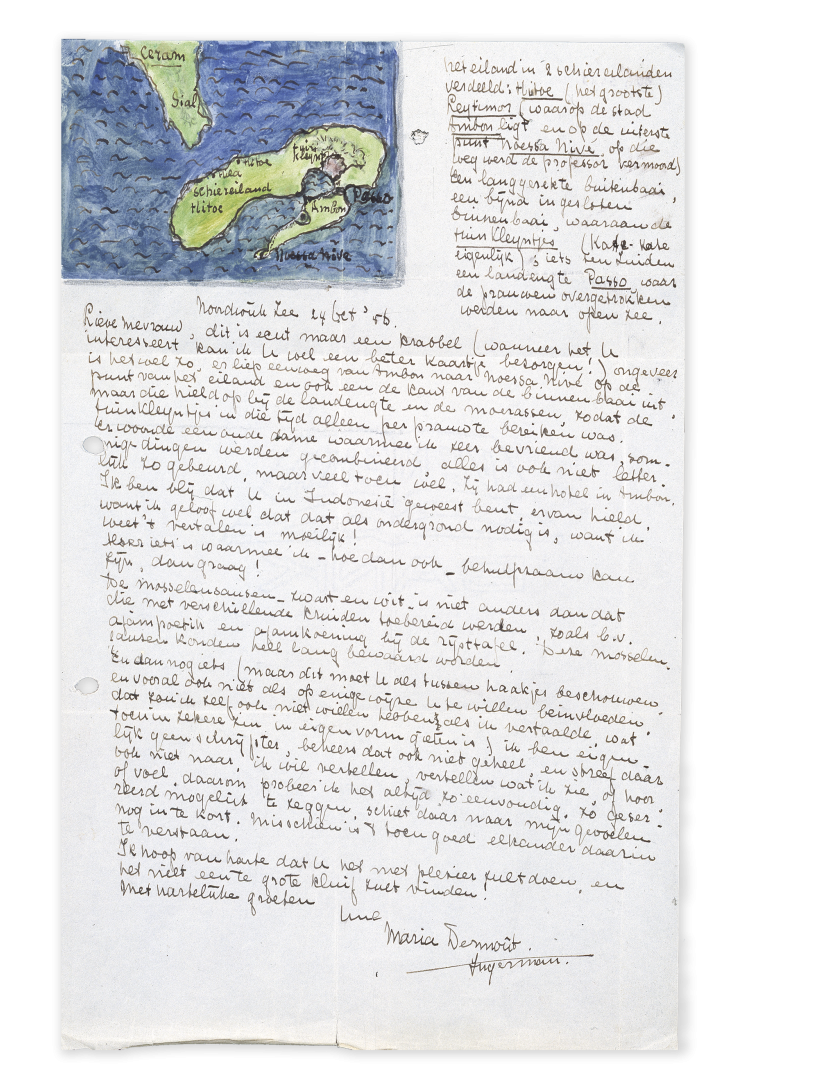 Ceram
Sial
tuin
Kleyntjes
Hitoe
Hila
schiereiland
Hitoe
Passo
Ambon
Noessa Nive
het eiland in 2 schiereilanden
verdeeld: Hitoe (het grootste)
Leytimor (waarop de stad
Ambon ligt en op de uiterste
punt Noessa Nive, op die
weg werd de professor vermoord)
Een langgerekte buitenbaai,
een bijna ingesloten
binnenbaai, waaraan de
tuin Kleyntjes (Kate-Kate
eigenlijk), iets ten zuiden
een landengte Passo waar
de prauwen overgetrokken
werden naar open zee.
Noordwijk Zee 24 Oct '56.
Lieve mevrouw, dit is echt maar een krabbel (wanneer het U
interesseert kan ik U wel een beter kaartje bezorgen!) ongeveer
is het wel zo, er liep een weg van Ambon naar Noessa Nive op de
punt van het eiland en ook een de kant van de binnenbaai uit
maar die hield op bij de landengte en de moerassen, zodat de
tuin Kleyntjes in die tijd alleen per prauw te bereiken was.
Er woonde een oude dame waarmee ik zeer bevriend was, som-
mige dingen werden gecombineerd, alles is ook niet letter-
lijk zo gebeurd, maar veel toch wel. Zij had een hotel in Ambon.
Ik ben blij dat U in Indonesië geweest bent, ervan hield,
want ik geloof wel dat dat als ondergrond nodig is, want ik
weet 't vertalen is moeilijk!
Als er iets is waarmee ik - hoe dan ook - behulpzaam kan
zijn, dan graag!
De mosselensausen - zwart en wit - is niet anders dan dat
die met verschillende kruiden toebereid werden, zoals b.v.
ajampoetih en ajamkoening bij de rijsttafel. Deze mosselen-
sausen konden heel lang bewaard worden.
En dan nog iets (maar dit moet U als tussen haakjes beschouwen
en vooral ook niet als op enige wijze U te willen beïnvloeden
dat zou ik zelf ook niet willen hebben, als ik vertaalde, wat
toch in zekere zin in eigen vorm gieten is) ik ben eigen-
lijk geen schrijfster, beheers dat ook niet geheel, en streef daar
ook niet naar, ik wil vertellen, vertellen wat ik zie, of hoor
of voel, daarom probeer ik het altijd zo eenvoudig, zo geser-
reerd mogelijk te zeggen, schiet daar naar mijn gevoelen
nog in te kort. Misschien is 't toch goed elkander daarin
te verstaan.
Ik hoop van harte dat U het met plezier zult doen, en
het niet een te grote kluif zult vinden.
Met hartelijke groeten
Uwe
Maria Dermoût.
Ingerman.